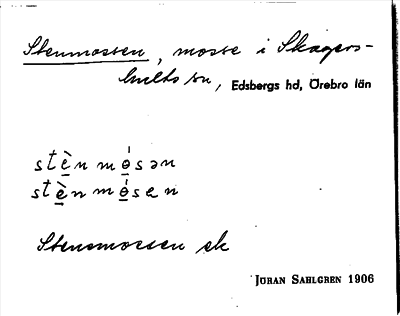 Stenmossen, mosse i Skagers-
hults sn, Edsbergs hd, Örebro län
stè̱n mo̱̍sən
stè̱n mo̱̍sen
Stensmossen ek
JÖRAN SAHLGREN 1906